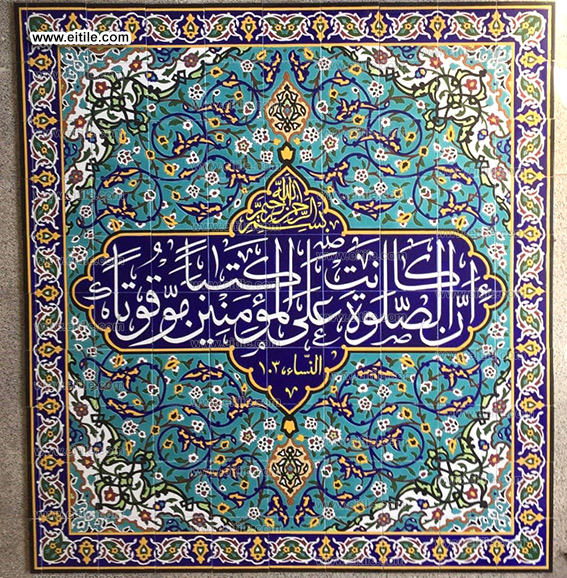 www.eitile.com
بسم الله الرحمن الرحيم
إنّ الصّلوة كانت على المؤمنين كتٰباً موّقوتاً
النّساء، ١٠٣